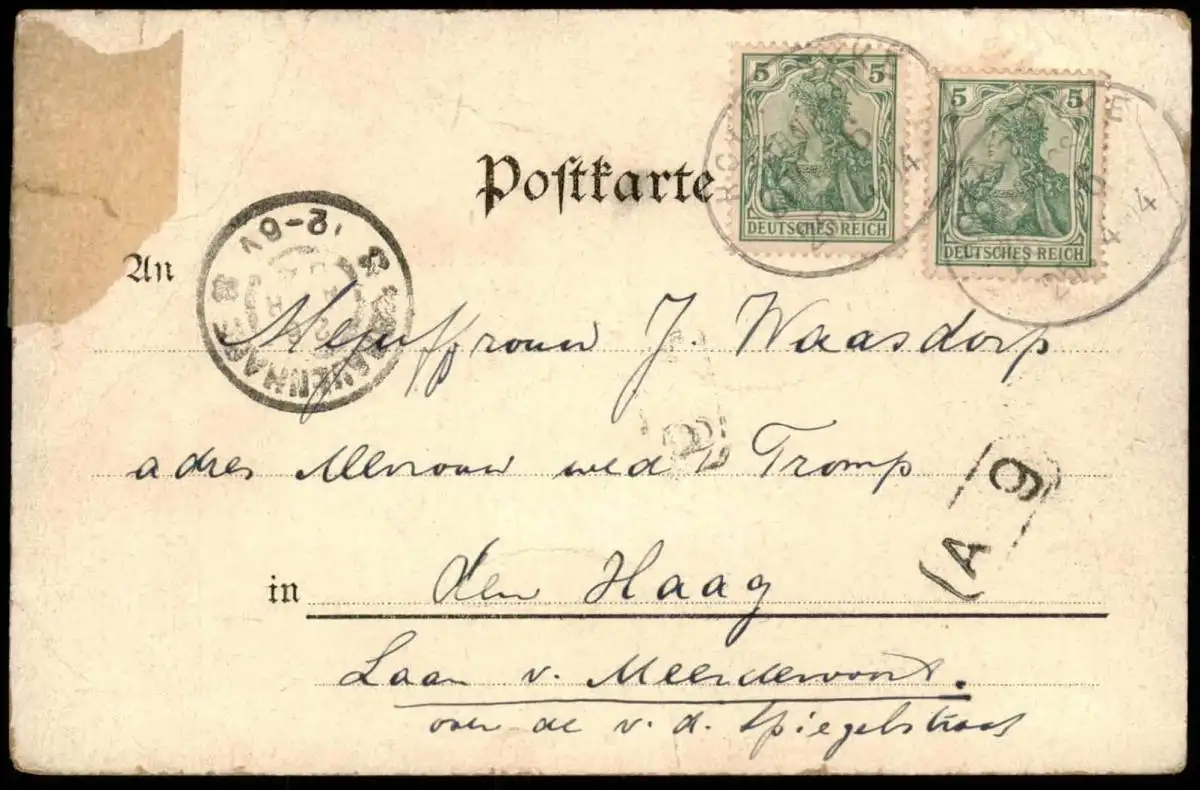 5 5
DEUTSCHES REICH
5 5
DEUTSCHES REICH
Postkarte
An
2-6V
Mejuffrouw J. Waasdorp
adres Mevrouw wed Tromp
A 9
in den Haag
Laan v. Meerdervoort.
over de v. d. Spiegelstraat